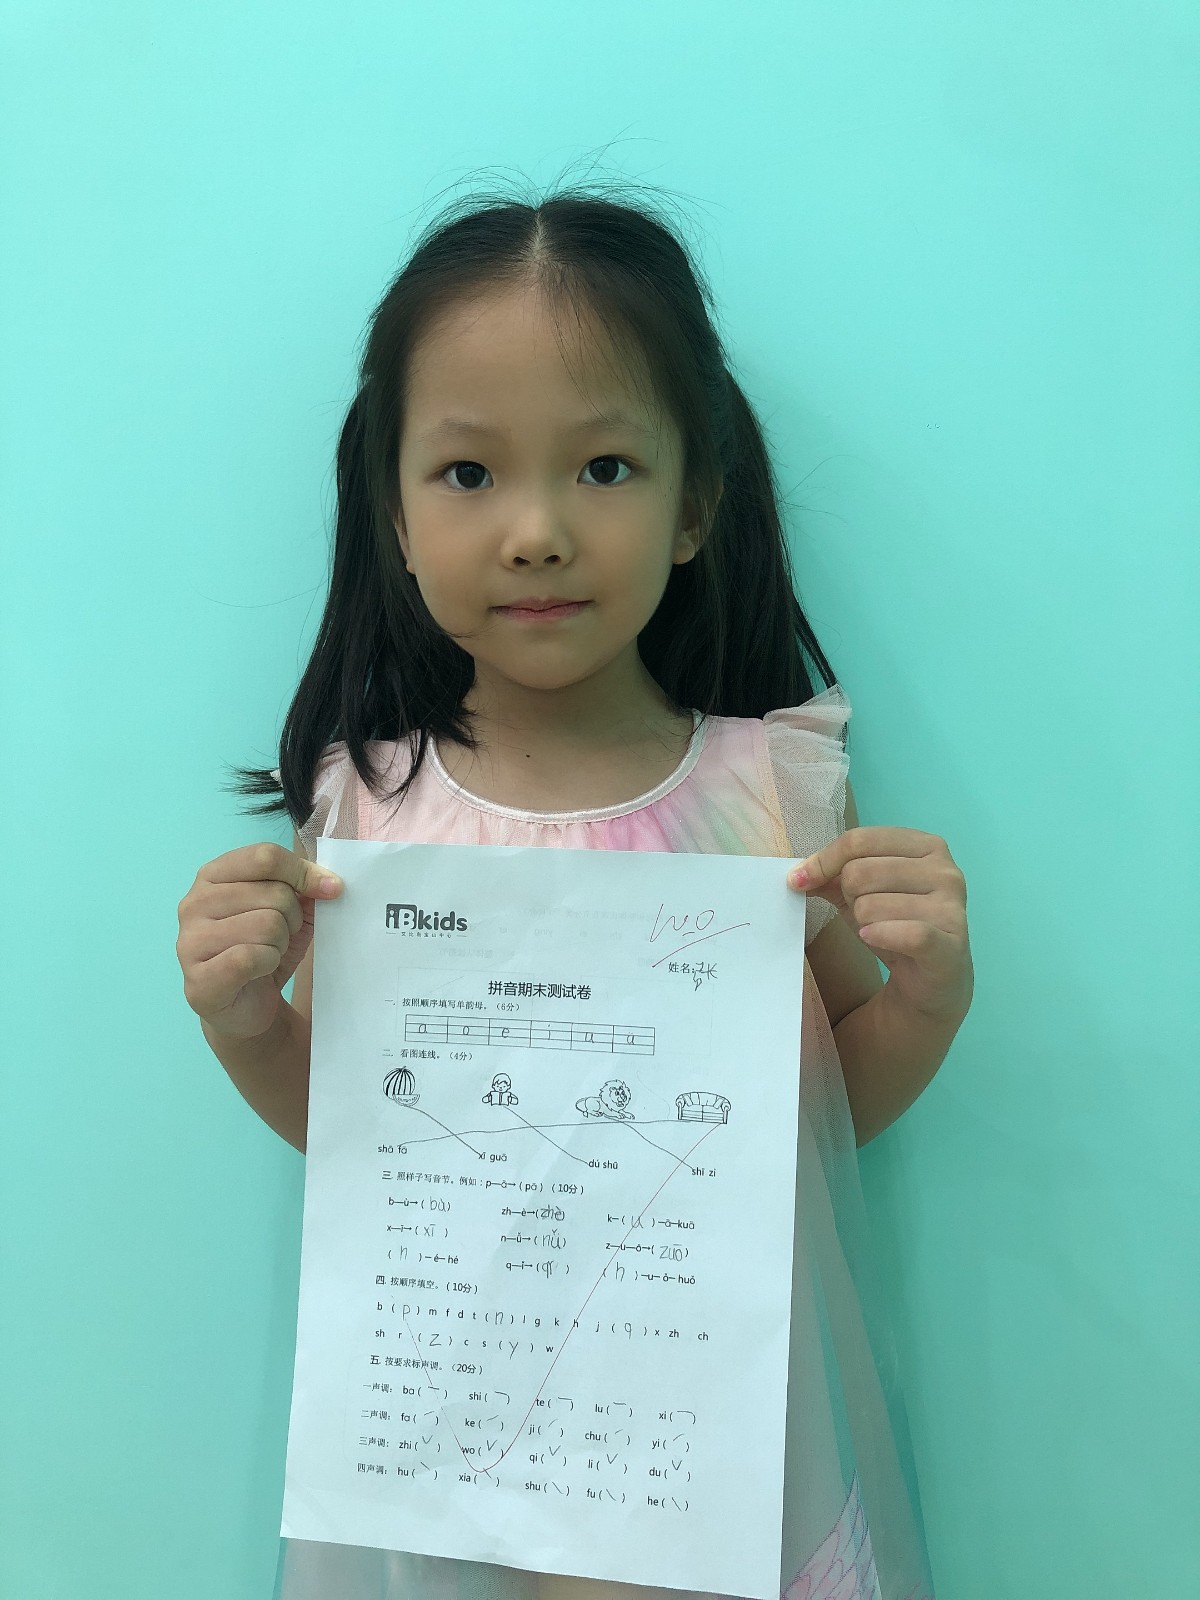 iBkids
100
姓名:
拼音期末测试卷
一. 按照顺序填写单韵母。（6分）
a o e i u ü
二. 看图连线。（4分）
shā fā xī guā dú shū shī zi
三. 照样子写音节。例如：p—ā→（pā）（10分）
b—ù→（bù） zh—è→（zhè） k—（u）—ā—kuā
x—ī→（xī） n—ǚ→（nǚ） z—u—ō→（zuō）
（h）—é—hé q—ī→（qī） （h）—u—ǒ—huǒ
四. 按顺序填空。（10分）
b （p） m f d t （n） l g k h j （q） x zh ch
sh r （z） c s （y） w
五. 按要求标声调。（20分）
一声调： ba（ˉ） shi（ˉ） te（ˉ） lu（ˉ） xi（ˉ）
二声调： fa（ˊ） ke（ˊ） ji（ˊ） chu（ˊ） yi（ˊ）
三声调： zhi（ˇ） wo（ˇ） qi（ˇ） li（ˇ） du（ˇ）
四声调： hu（ˋ） xia（ˋ） shu（ˋ） fu（ˋ） he（ˋ）